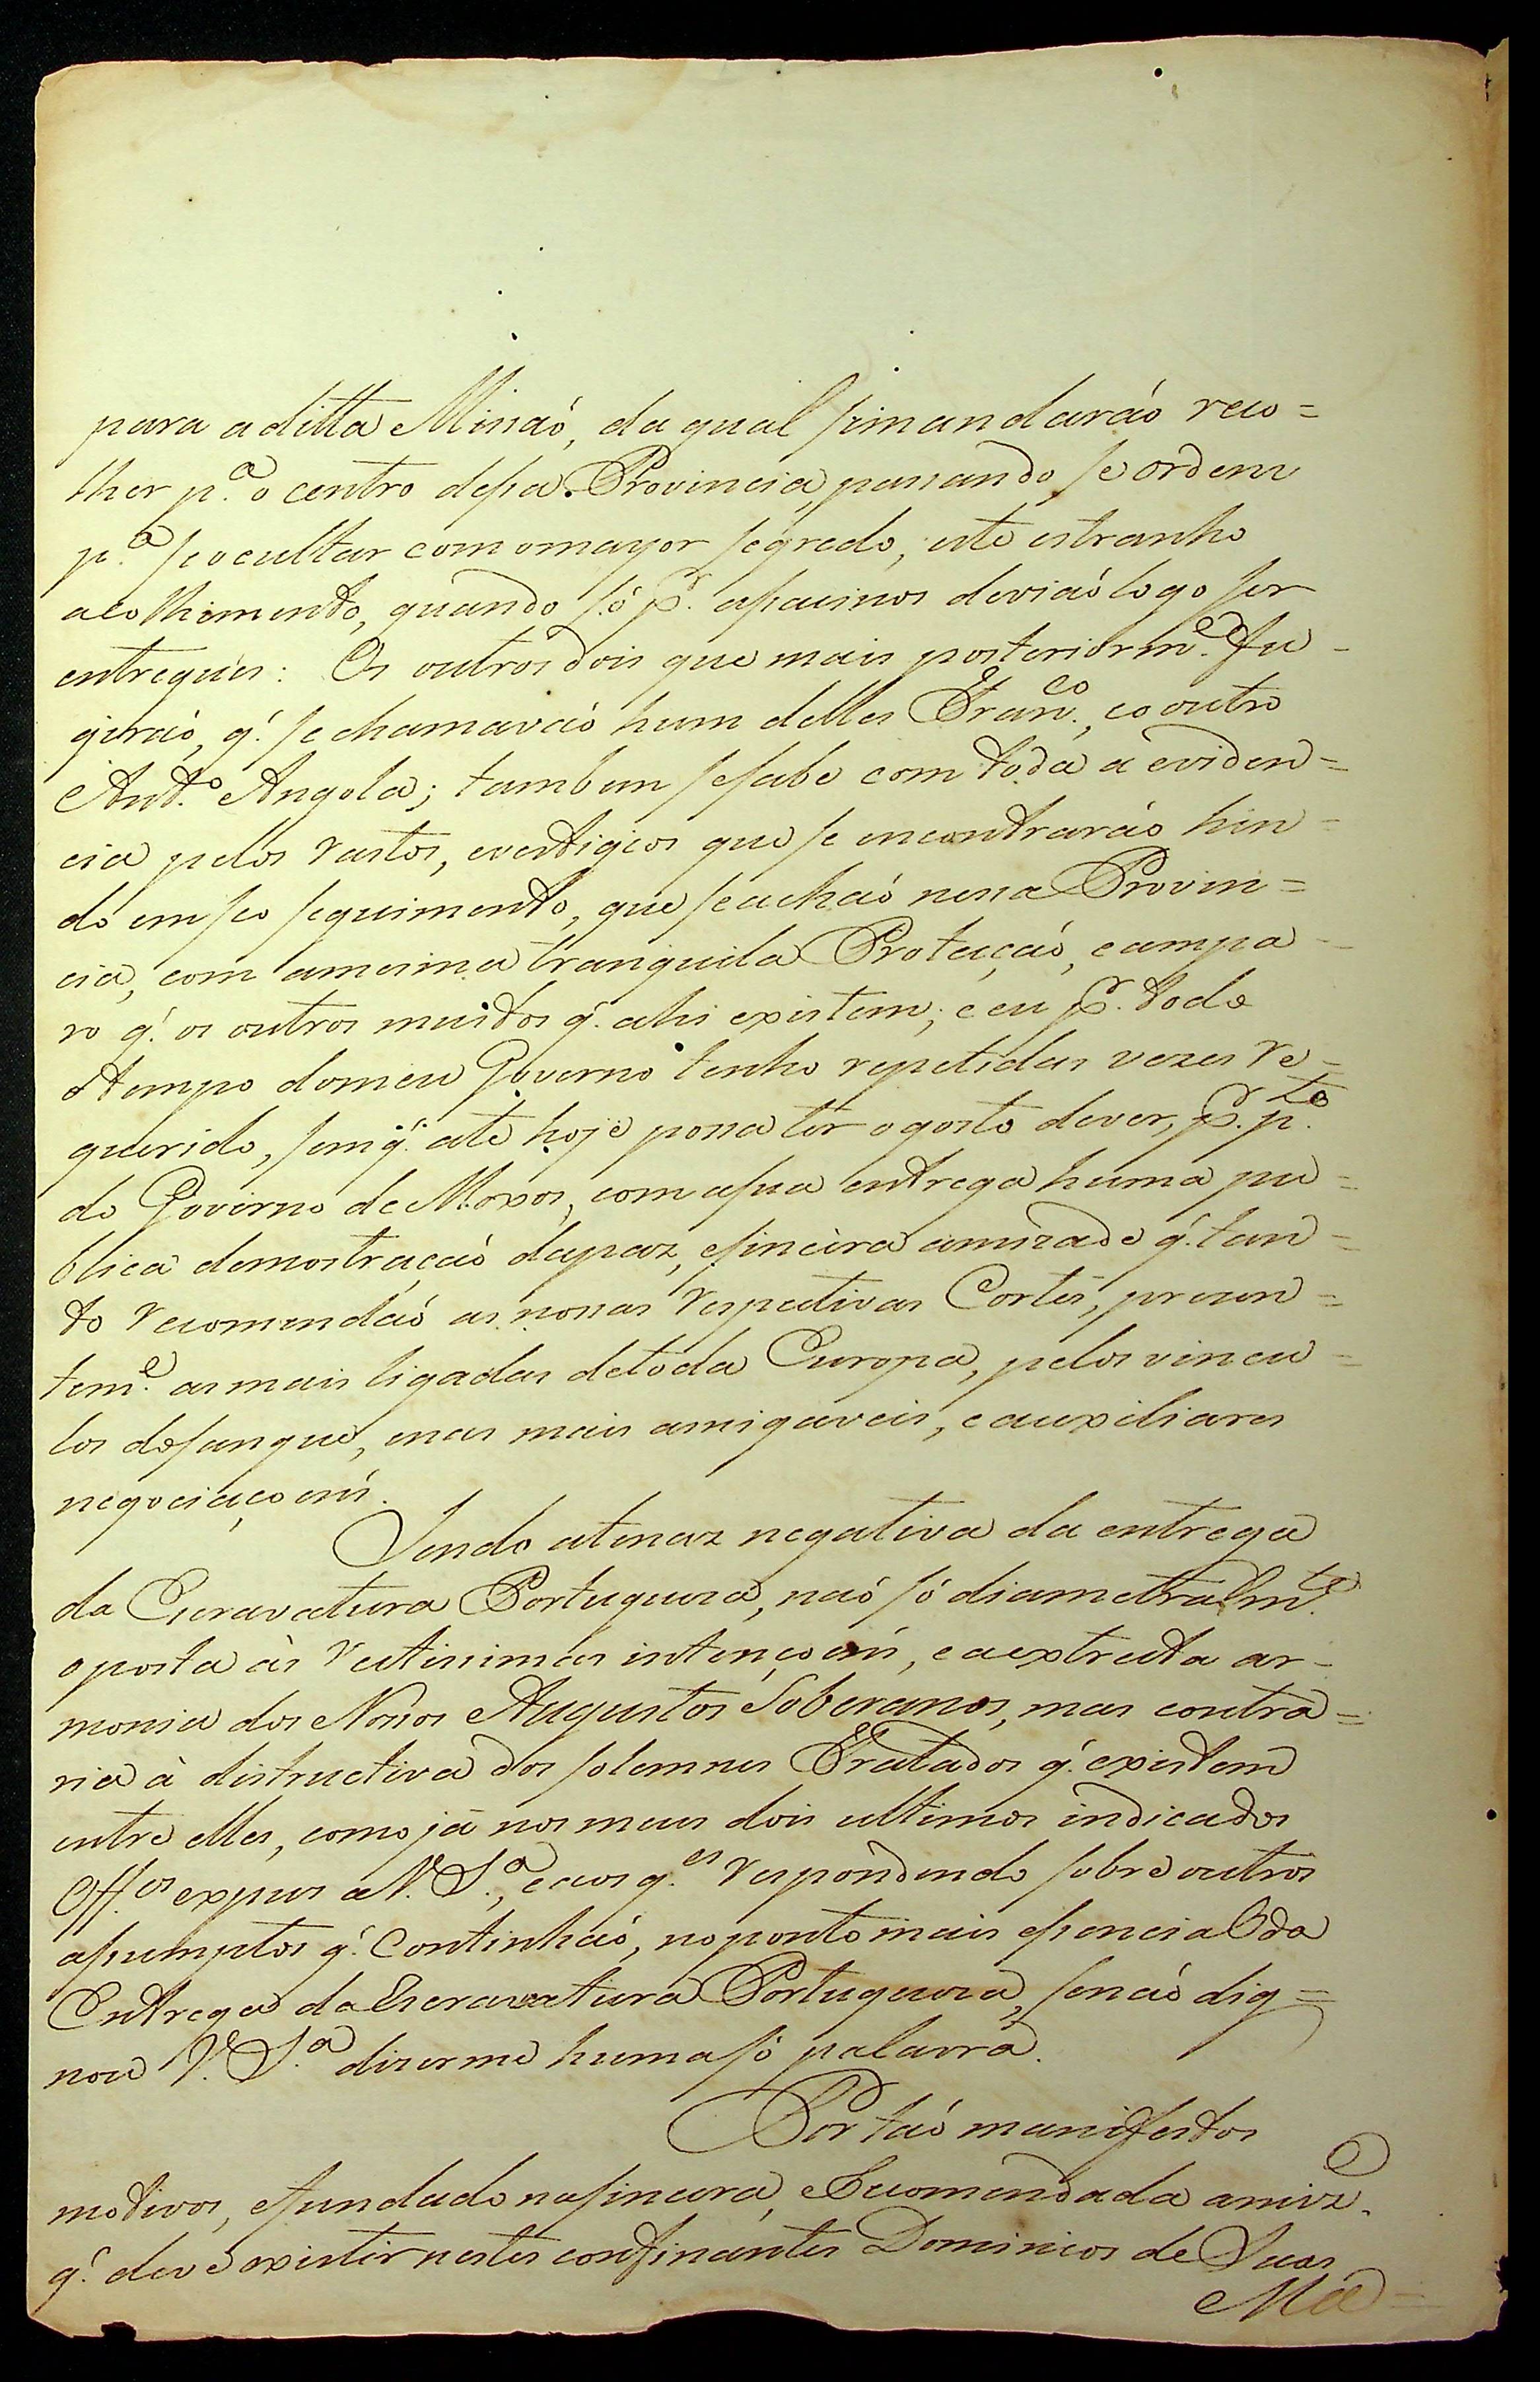 para aditta Missaó, da qual semandaráo reco=
lher p.ª o centro desa Provincia, passando se ordem
p.ª seocultar comomayor segredo, este estranho
acolhimento, quando só p.r asasinos deviaó logo ser
entregues: Os outros dois que mais posteriorm.e fu-
giraó, q.' se chamavaó hum delles Fran.co, eo outro
Ant.o Angola; tambem sesabe com toda a eviden=
cia pelos rastos, evestigios que se encontraráo hin=
do em seo seguimento, que seachaó nessa Provin=
cia, com amesma tranquila Proteçaó, eampa-
ro q.' os outros muitos q.' ahi existem; e eu p.r todo
otempo domeu Governo tenho repetidas vezes re-
querido, semq.' até hoje possa ter ogosto dever, p.r p.te
do Governo de Moxos, com asua entrega huma pu=
blica demostraçaó dapaz, esincera amizade q.' tan=
to recomendaó as nossas respectivas Cortes, prezen=
tem.e as mais ligadas detoda Europa, pelos vincu=
los desangue, enas mais amigaveis, eauxiliares
negociaçoens.
Sendo atenaz negativa da entrega
da Escravatura Portugueza, naó só diametralm.te
oposta às rectissimas intençoens, eaextrecta ar-
monia dos Nossos Augustos Soberanos, mas contra=
ria à distructiva dos solemnes Tratados q.' existem
entre elles, como já nos meus dois ultimos indicados
Off.os expus a V. S.ª, e aos q.es respondendo sobre outros
asumptos q.' Continhaó, noponto mais esencial da
Entrega da Escravatura Portugueza, senaó dig=
nou V. S.ª dizerme humasó palavra.
Por taó manifestos
motivos, efundado nasincera, eRecomendada amiz.e
q.' deve existir nestes confinantes Dominios de Suas
Ma=